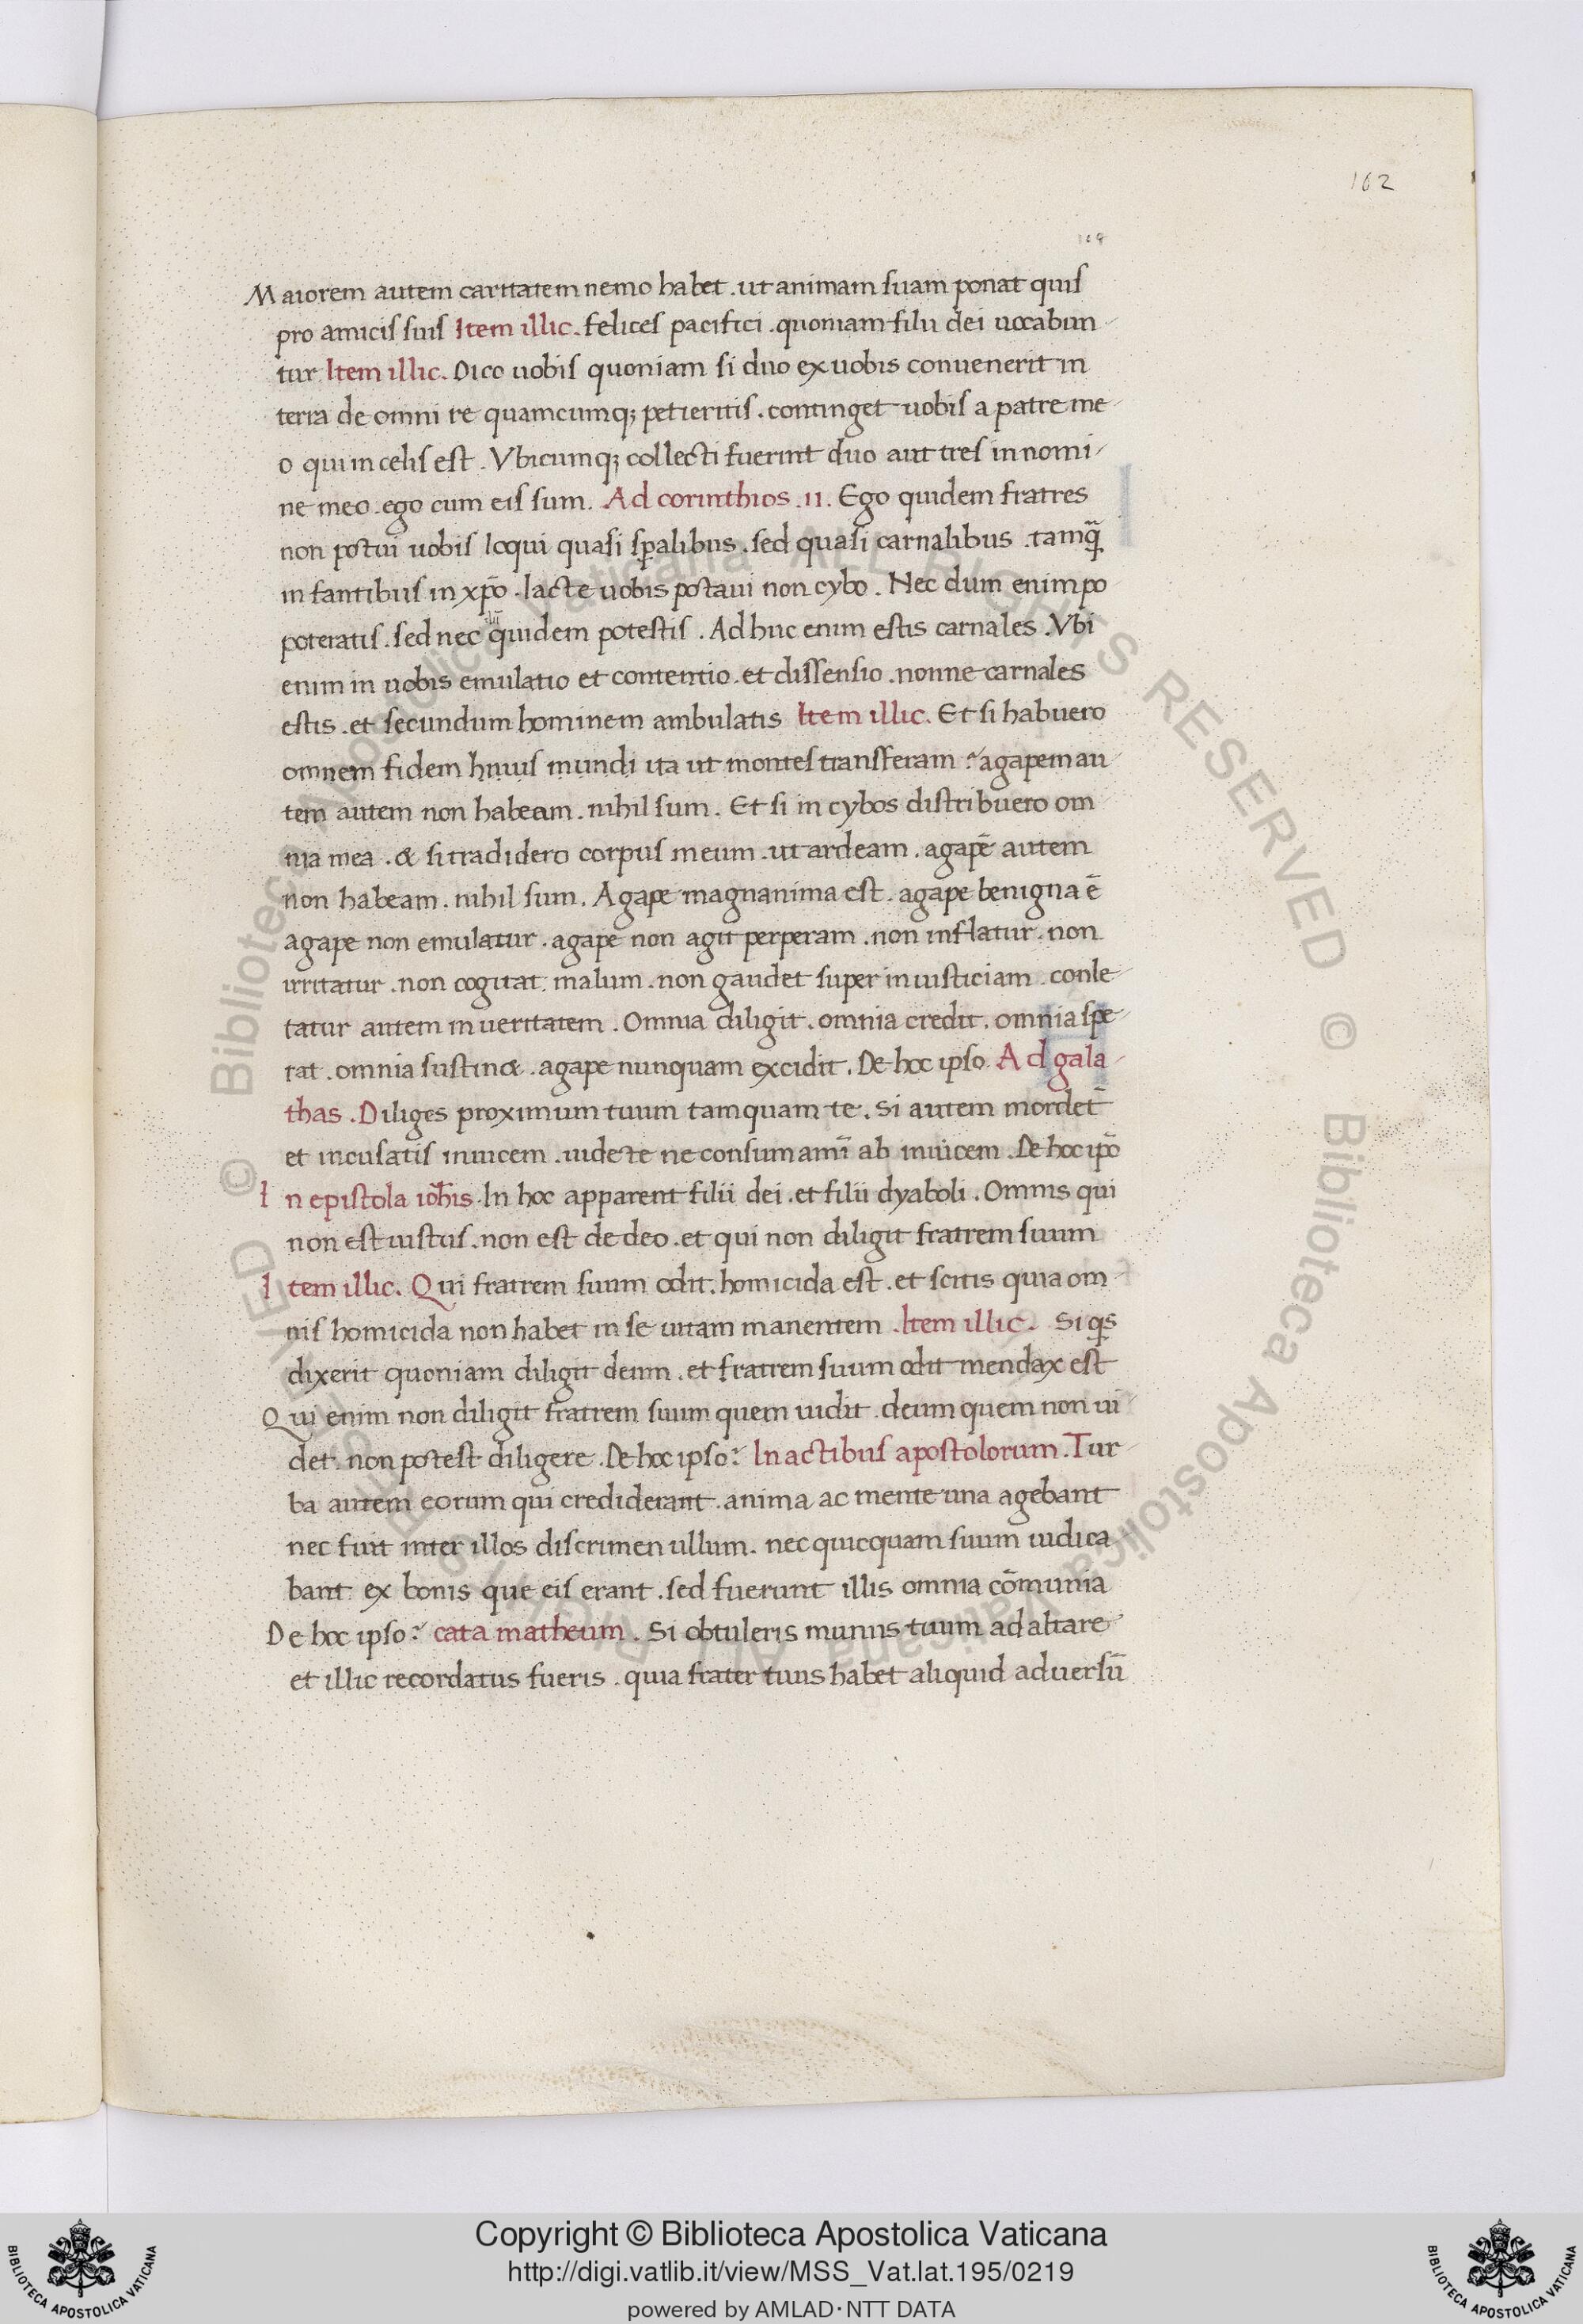 162
109
Maiorem autem caritatem nemo habet . ut animam suam ponat quis
pro amicis suis Item illic . felices pacifici . quoniam filii dei uocabun
tur Item illic . Dico uobis quoniam si duo ex uobis conuenerit in
terra de omni re quamcumq; petieritis . continget uobis a patre me
o qui in celis est . Vbicumq; collecti fuerint duo aut tres in nomi
ne meo . ego cum eis sum . Ad corinthios . 11 . Ego quidem fratres
non potui uobis loqui quasi sp̄alibus . sed quasi carnalibus . tamq̄
infantibus in xp̄o . lacte uobis potaui non cybo . Nec dum enim po
poteratis . sed nec quidem potestis . Ad huc enim estis carnales . Vbi
enim in uobis emulatio et contentio . et dissensio . nonne carnales
estis . et secundum hominem ambulatis Item illic . Et si habuero
omnem fidem huius mundi ita ut montes transferam : agapem au
tem autem non habeam . nihil sum . Et si in cybos distribuero om
nia mea . & si tradidero corpus meum . ut ardeam . agapē autem
non habeam . nihil sum . Agape magnanima est . agape benigna ē
agape non emulatur . agape non agit perperam . non inflatur . non
irritatur . non cogitat malum . non gaudet super iniusticiam . conle
tatur autem in ueritatem . Omnia diligit . omnia credit . omnia spe
rat . omnia sustin& . agape nunquam excidit . De hoc ipso Ad gala
thas . Diliges proximum tuum tamquam te . Si autem mordet̄
et incusatis inuicem . uidete ne consumamī ab inuicem . De hoc ip̄o
In epistola ioh̄is . In hoc apparent filii dei . et filii dyaboli . Omnis qui
non est iustus . non est de deo . et qui non diligit fratrem suum
Item illic . Qui fratrem suum odit . homicida est . et scitis quia om
nis homicida non habet in se uitam manentem . Item illic . Si qs
dixerit quoniam diligit deum . et fratrem suum odit mendax est
Qui enim non diligit fratrem suum quem uidit . deum quem non ui
det . non potest diligere . De hoc ipso : In actibus apostolorum . Tur
ba autem eorum qui crediderant . anima ac mente una agebant
nec fuit inter illos discrimen ullum . nec quicquam suum iudica
bant ex bonis que eis erant . sed fuerunt illis omnia cōmunia
De hoc ipso : cata matheum . Si obtuleris munus tuum ad altare
et illic recordatus fueris . quia frater tuus habet aliquid aduersū
© Biblioteca Apostolica Vaticana ALL RIGHTS RESERVED © Biblioteca Apostolica Vaticana ALL RIGHTS RESERVED
BIBLIOTECA APOSTOLICA VATICANA
Copyright © Biblioteca Apostolica Vaticana
http://digi.vatlib.it/view/MSS_Vat.lat.195/0219
powered by AMLAD·NTT DATA
BIBLIOTECA APOSTOLICA VATICANA